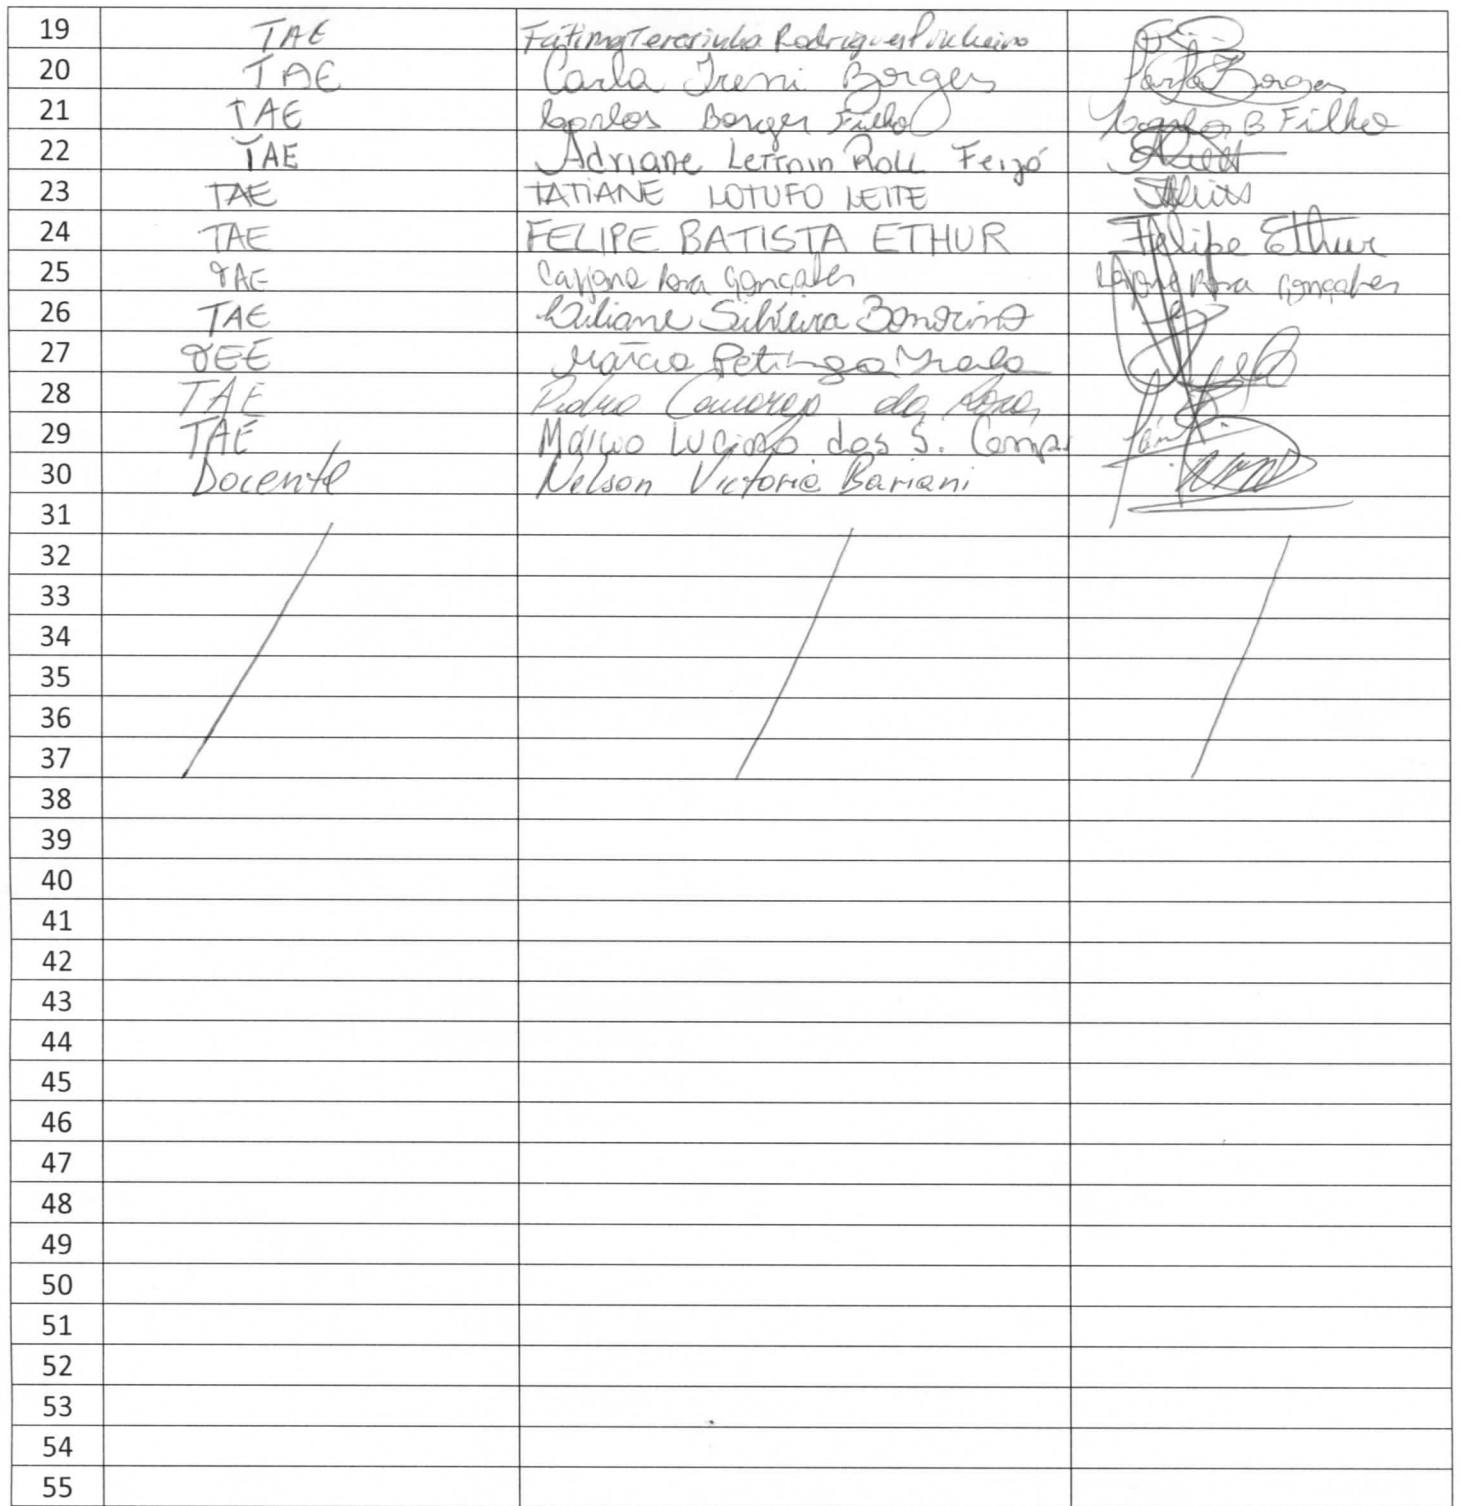 19 TAE Fátima Teresinha Rodrigues Pinheiro
20 TAE Carla Ireni Borges Carla Borges
21 TAE Carlos Borges Filho Carlos B Filho
22 TAE Adriane Lettnin Roll Feijó
23 TAE TATIANE LOTUFO LEITE
24 TAE FELIPE BATISTA ETHUR Felipe Ethur
25 TAE Cassiane Rosa Gonçalves Rosa Gonçalves
26 TAE Silveira Bonorino
27 Márcio
28 TAE Pedro Camargo da Rosa
29 TAE Márcio dos S.
30 Docente Nelson Victoria Bariani
31
32
33
34
35
36
37
38
39
40
41
42
43
44
45
46
47
48
49
50
51
52
53
54
55